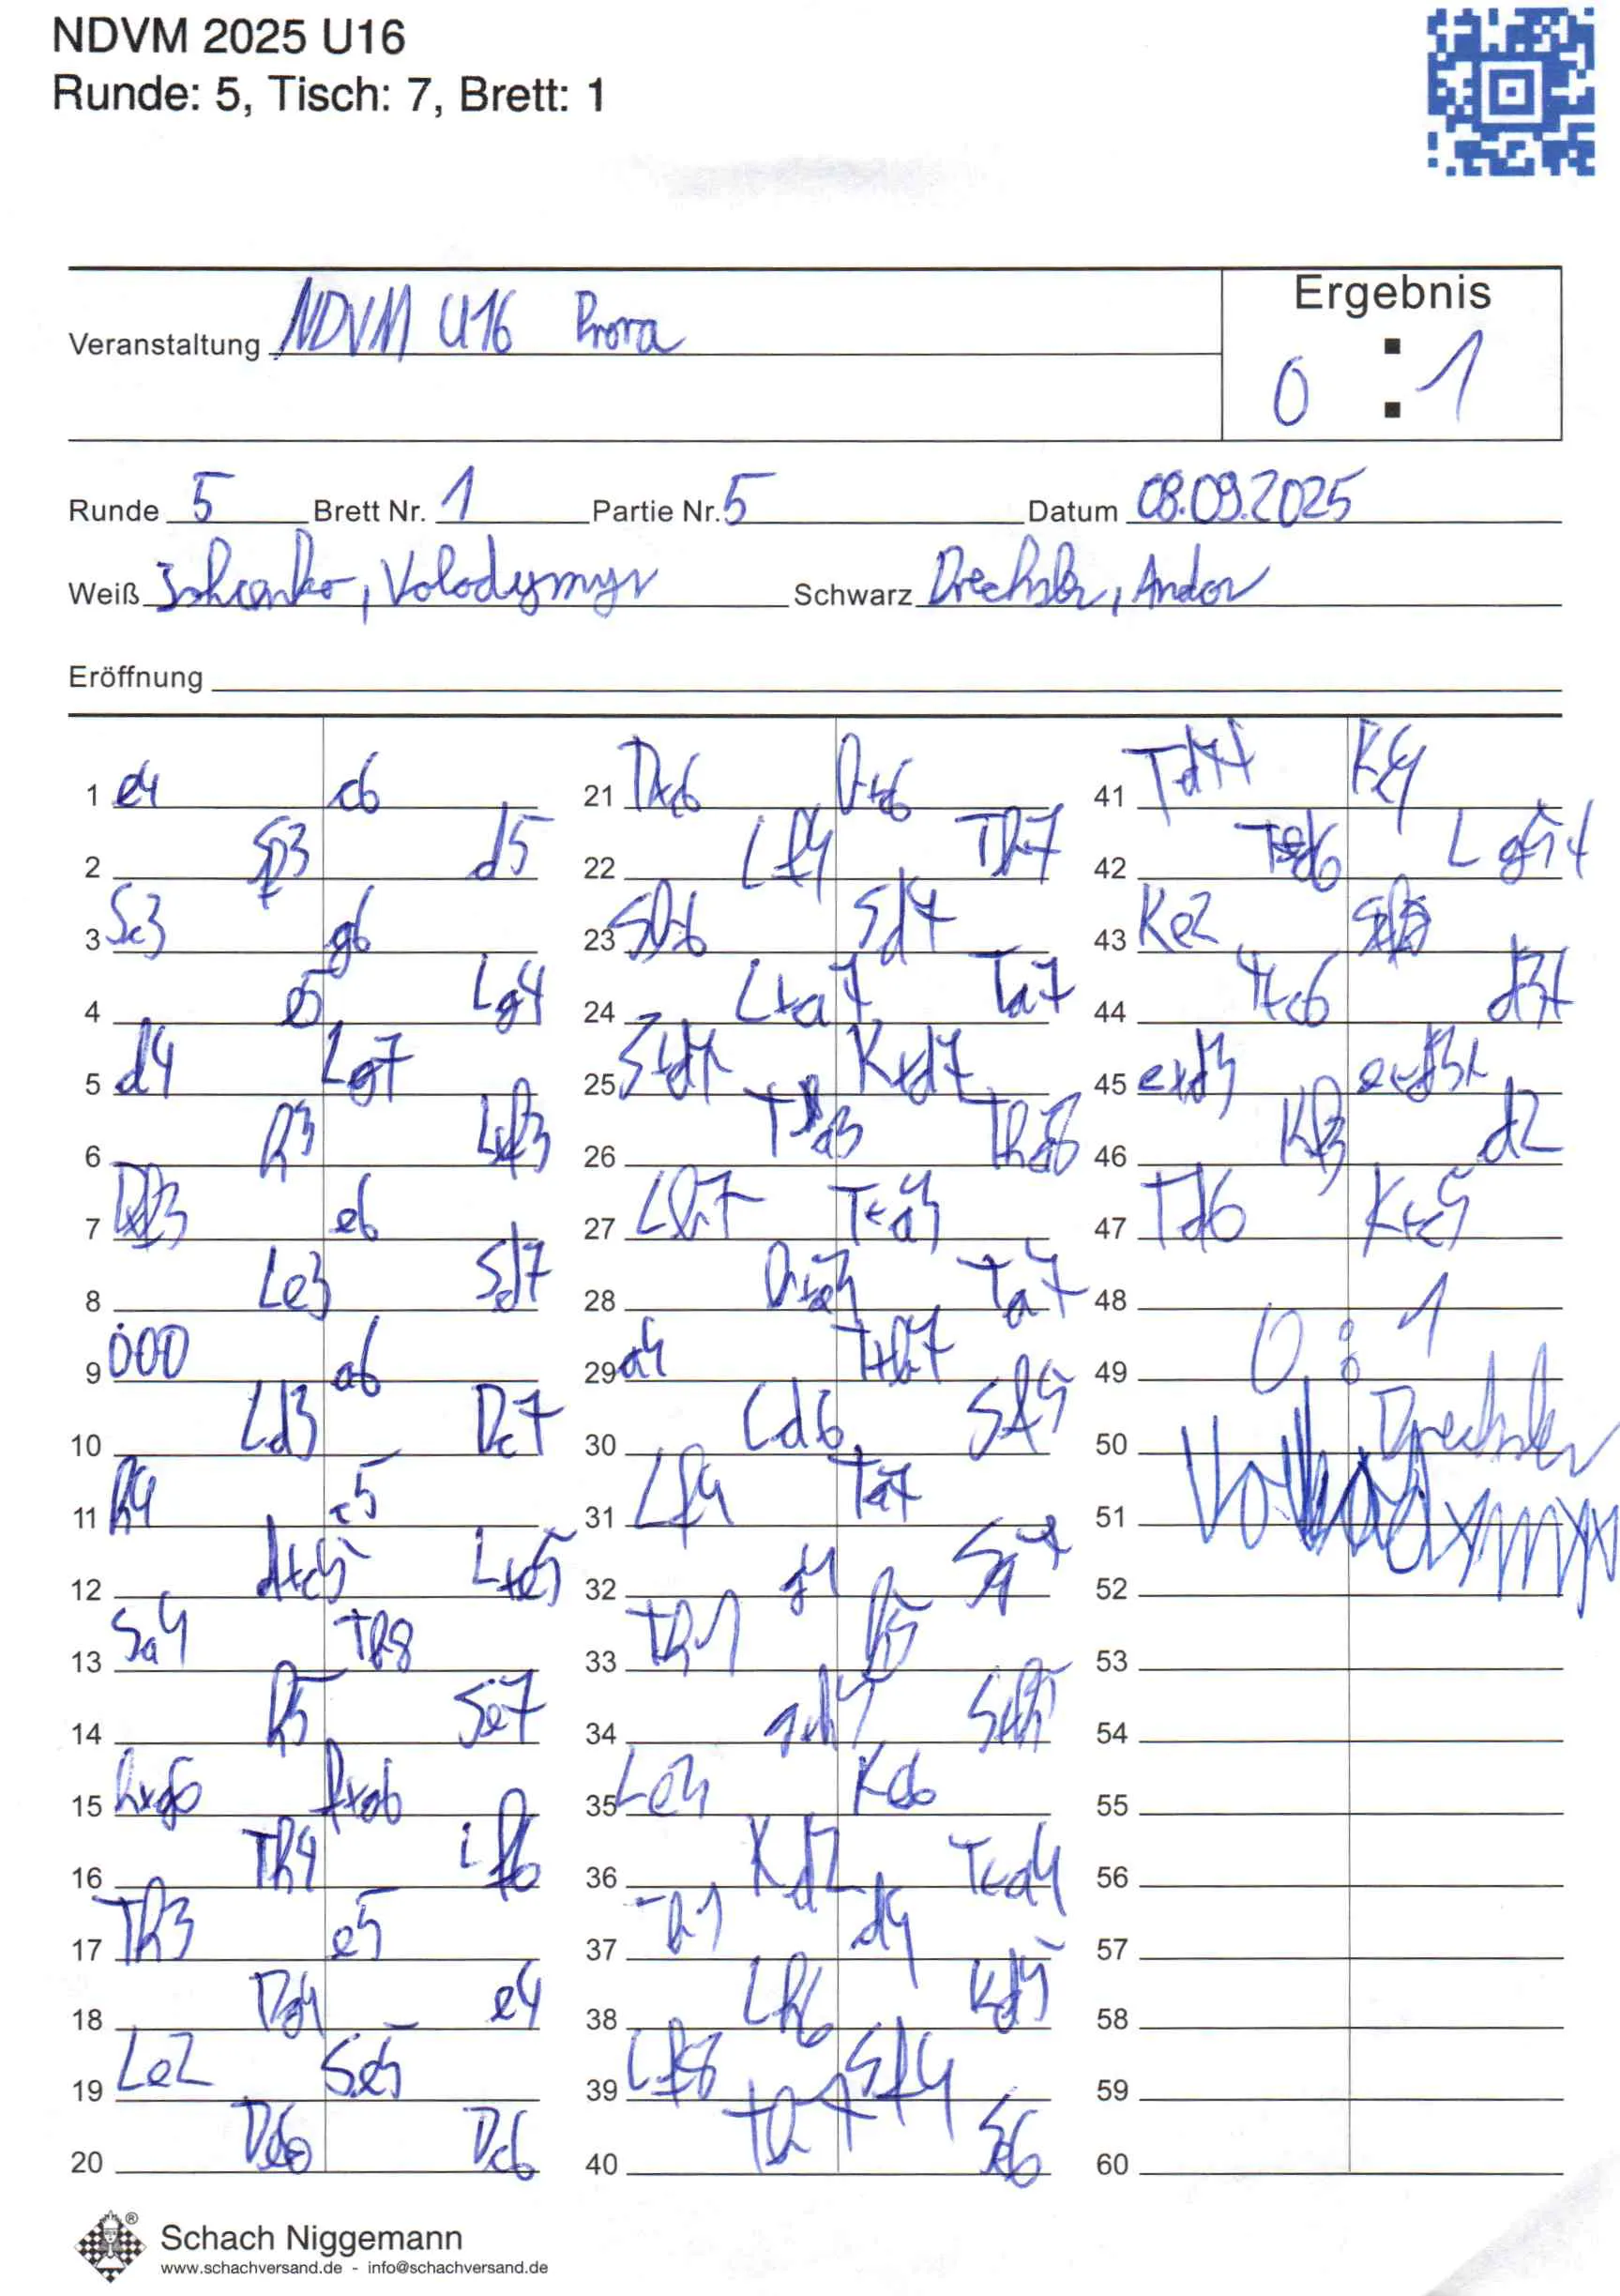 NDVM 2025 U16
Runde: 5, Tisch: 7, Brett: 1
Ergebnis
Veranstaltung NDVM U16 Prora
0 : 1
Runde 5 Brett Nr. 1 Partie Nr. 5 Datum 08.09.2025
Weiß Volodymyr Schwarz Drechsler, Andor
Eröffnung
1 e4 c6
2 Sf3 d5
3 Sc3 g6
4 e5 Lg4
5 d4 Lg7
6 h3 Lxf3
7 Dxf3 e6
8 Le3 Sd7
9 000 a6
10 Ld3 Dc7
11 h4 c5
12 dxc5 Lxe5
13 Sa4 Tb8
14 h5 Se7
15 hxg6 fxg6
16 Th4 Lf6
17 Th3 e5
18 Dg4 e4
19 Le2 Se5
20 Dd6
21 Dxc6
22 Lf4 Th7
23 Sb6 Sd7
24 Lxa7 Ta7
25 Sxd7 Kxd7
26
27 Txa3
28 Ta7
29 a4
30 Ld6 Sf5
31 Lf4 Ta7
32 g4 Sg7
33 Th1 h5
34 Sxh5
35 Kc6
36 Kd2 Txa4
37 Th1 d4
38 Lh6 Kd5
39 Lf8 Sf4
40 Th7 Se6
41 Td7+
42 Lg5+
43 Ke2
44 d3+
45 exd3+
46 Kf3 d2
47 Td6 Kxc5
48
49 0 : 1
50 Drechsler
51 Volodymyr
52
53
54
55
56
57
58
59
60
Schach Niggemann
www.schachversand.de - info@schachversand.de